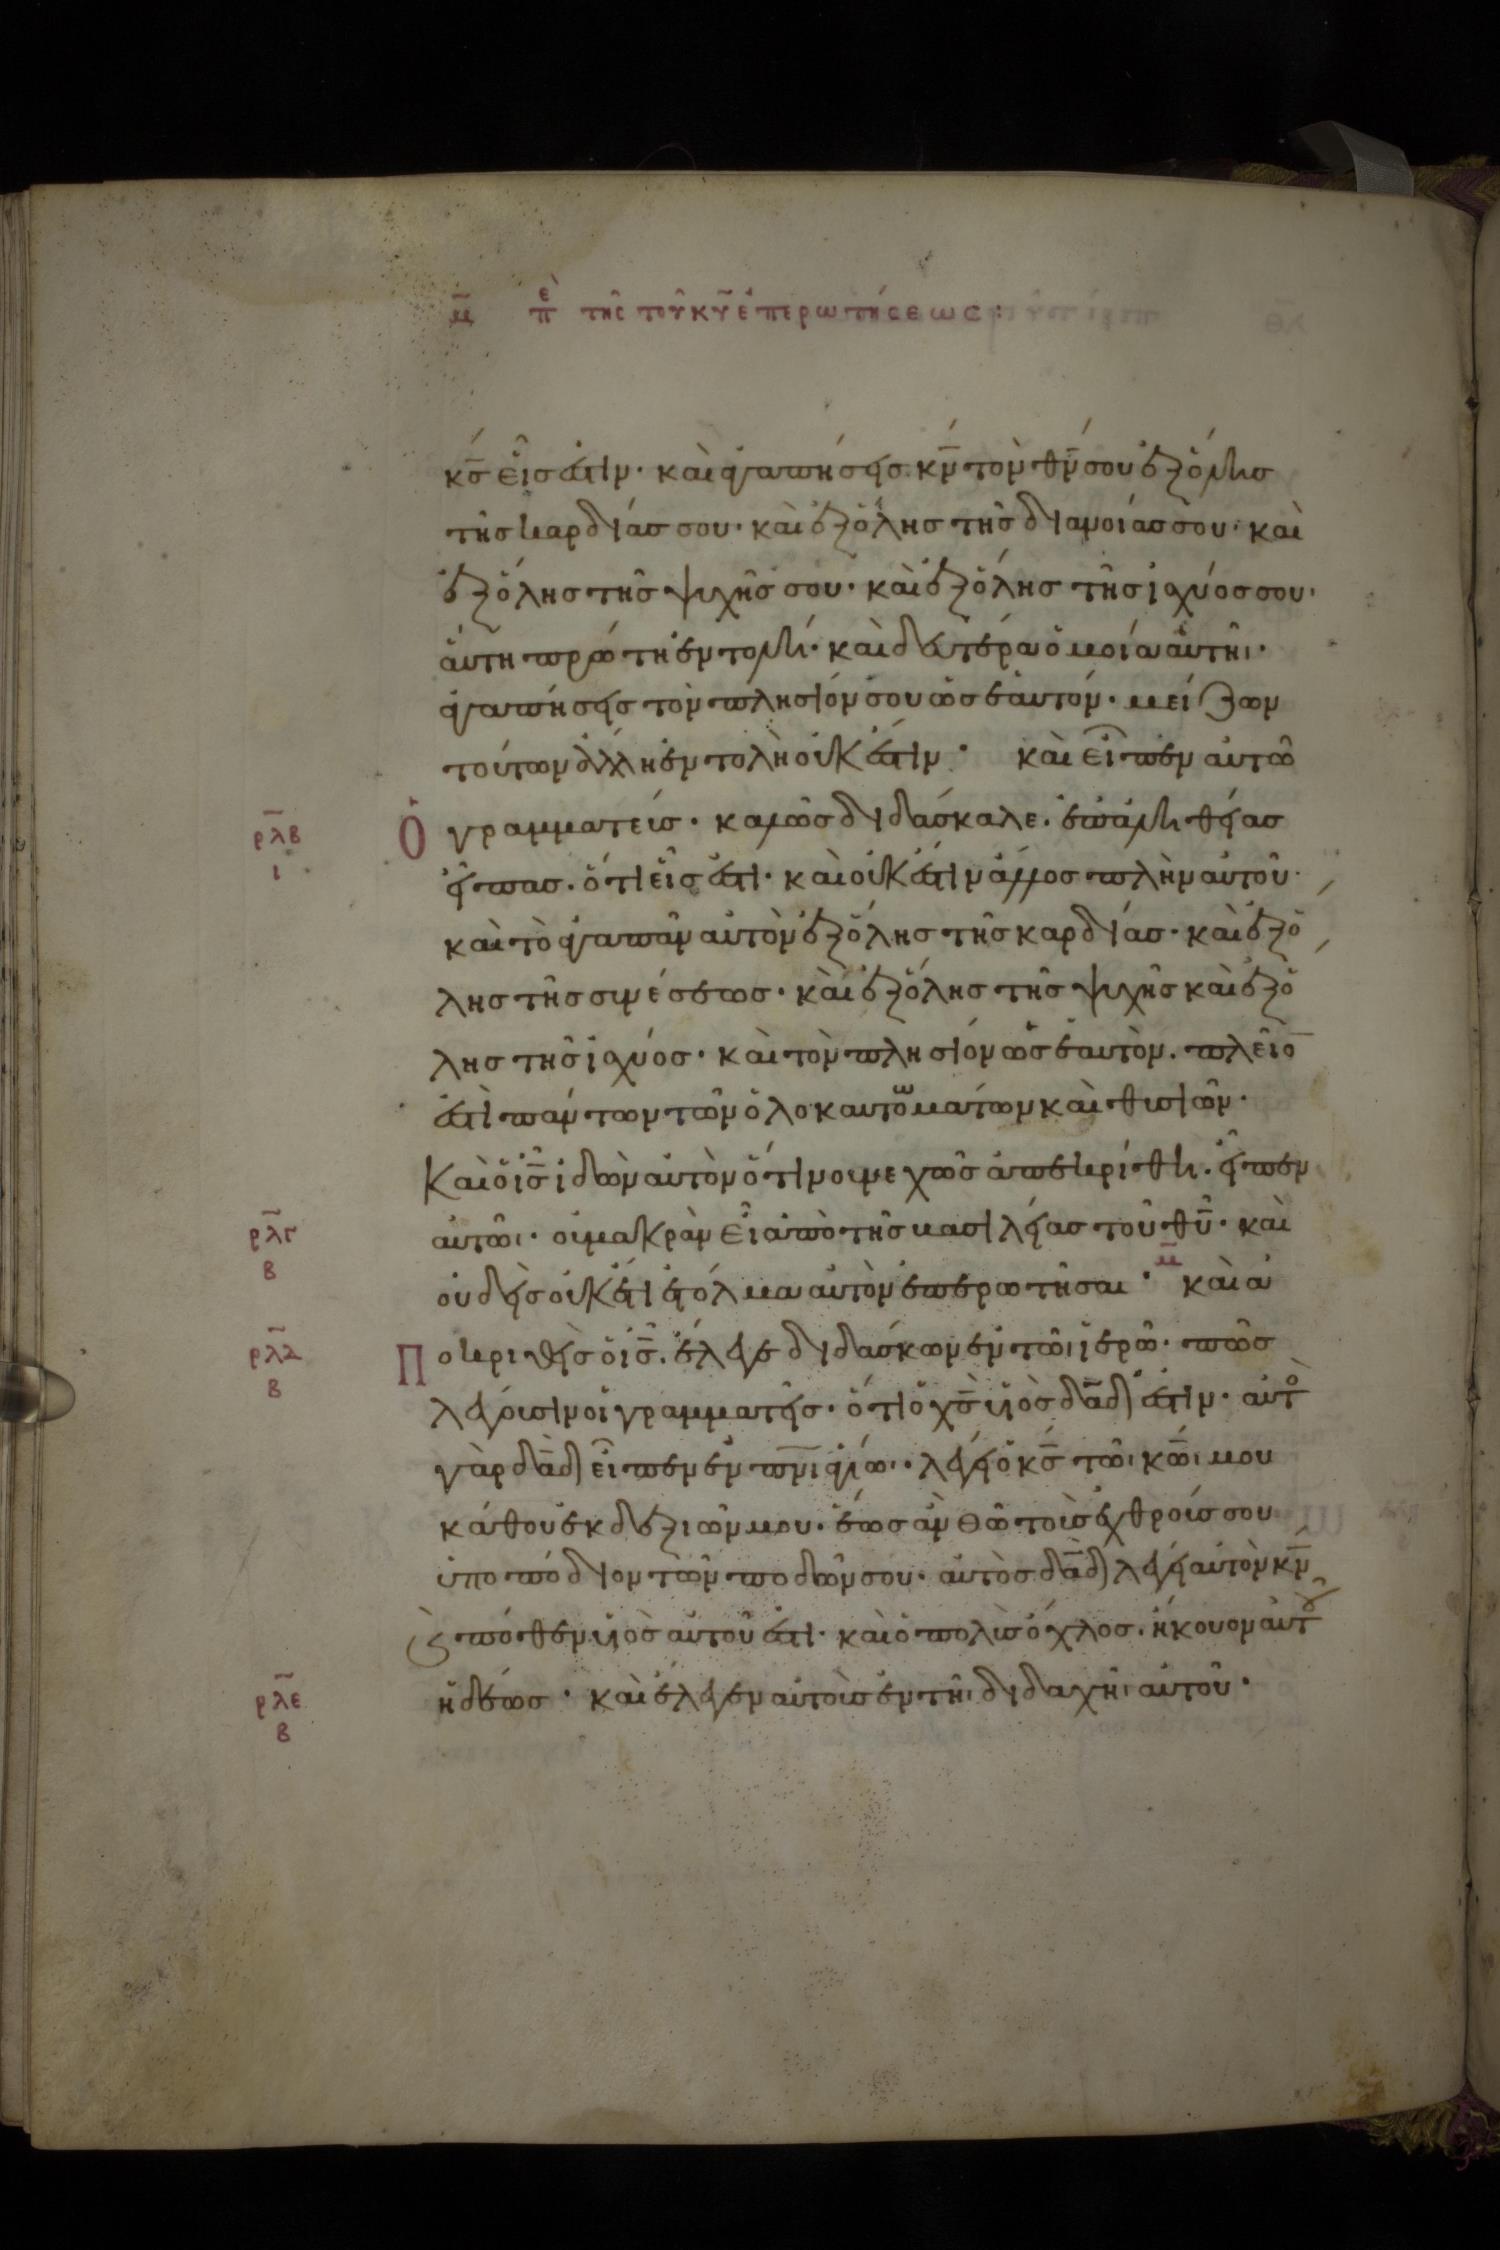 μ̅ πὲ τῆς τοῦ κυ̅ ἐπερωτήσεως:
κ̅ς̅ εἷς ἐστιν· καὶ ἀγαπήσεις κ̅ν̅ τὸν θ̅ν̅ σου ἐξ ὅλης
τῆς καρδίας σου· καὶ ἐξ ὅλης τῆς διανοίας σου· καὶ
ἐξ ὅλης τῆς ψυχῆς σου· καὶ ἐξ ὅλης τῆς ἰσχύος σου·
αὕτη πρώτη ἐντολή· καὶ δευτέρα ὁμοία αὐτῆι·
ἀγαπήσεις τὸν πλησίον σου ὡς ἑαυτόν· μείζων
τούτων ἄλλη ἐντολὴ οὐκ ἔστιν· καὶ εἶπεν αὐτῶ
ρ̅λ̅β̅ ὁ γραμματεύς· καλῶς διδάσκαλε. ἐπ' ἀληθείας
ι εἶπας. ὅτι εἷς ἐστι· καὶ οὐκ ἔστιν ἄλλος πλὴν αὐτοῦ·
καὶ τὸ ἀγαπᾶν αὐτὸν ἐξ ὅλης τῆς καρδίας· καὶ ἐξ ὅ
λης τῆς συνέσεως· καὶ ἐξ ὅλης τῆς ψυχῆς καὶ ἐξ ὅ
λης τῆς ἰσχύος· καὶ τὸν πλησίον ὡς ἑαυτὸν. πλεῖο̅
ἐστὶ πάντων τῶν ὁλοκαυτωμάτων καὶ θυσιῶν·
Καὶ ὁ ι̅ς̅ ἰδὼν αὐτὸν ὅτι νουνεχῶς ἀπεκρίθη. εἶπεν
ρ̅λ̅γ̅ αὐτῶι· οὐ μακρὰν εἶ ἀπὸ τῆς βασιλείας τοῦ θ̅υ̅· καὶ
β οὐδεὶς οὐκέτι ἐτόλμα αὐτὸν ἐπερωτῆσαι· μ̅ καὶ ἀ
ρ̅λ̅δ̅ ποκριθεὶς ὁ ι̅ς̅. ἔλεγε διδάσκων ἐν τῶι ἱερῶ· πῶς
β λέγουσιν οἱ γραμματεῖς· ὅτι ὁ χ̅ς̅ υἱὸς δ̅α̅δ̅ ἐστιν· αὐτὸ
γὰρ δ̅α̅δ̅ εἶπεν ἐν π̅ν̅ι̅ ἁγίω· λέγει ὁ κ̅ς̅ τῶι κ̅ω̅ι μου
κάθου ἐκ δεξιῶν μου· ἕως ἂν θῶ τοὺς ἐχθρούς σου
ὑποπόδιον τῶν ποδῶν σου· αὐτὸς δ̅α̅δ̅ λέγει αὐτὸν κ̅ν̅
καὶ πόθεν υἱὸς αὐτοῦ ἐστι· καὶ ὁ πολὺς ὄχλος. ἤκουον αὐτοῦ
ρ̅λ̅ε̅ ἡδέως· καὶ ἔλεγεν αὐτοῖς ἐν τῆι διδαχῆι αὐτοῦ·
β